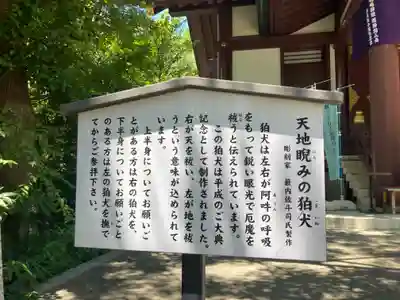 天地睨みの狛犬
彫刻家 藪内佐斗司氏製作
狛犬は左右が阿吽の呼吸
をもって鋭い眼光で厄魔を
祓うと伝えられています。
この狛犬は平成のご大典
記念として制作されました。
右が天を祓い、左が地を祓
うという意味が込められて
います。
上半身についてお願いご
とがある方は右の狛犬を、
下半身についてお願いごと
のある方は左の狛犬を撫で
てからご参拝下さい。